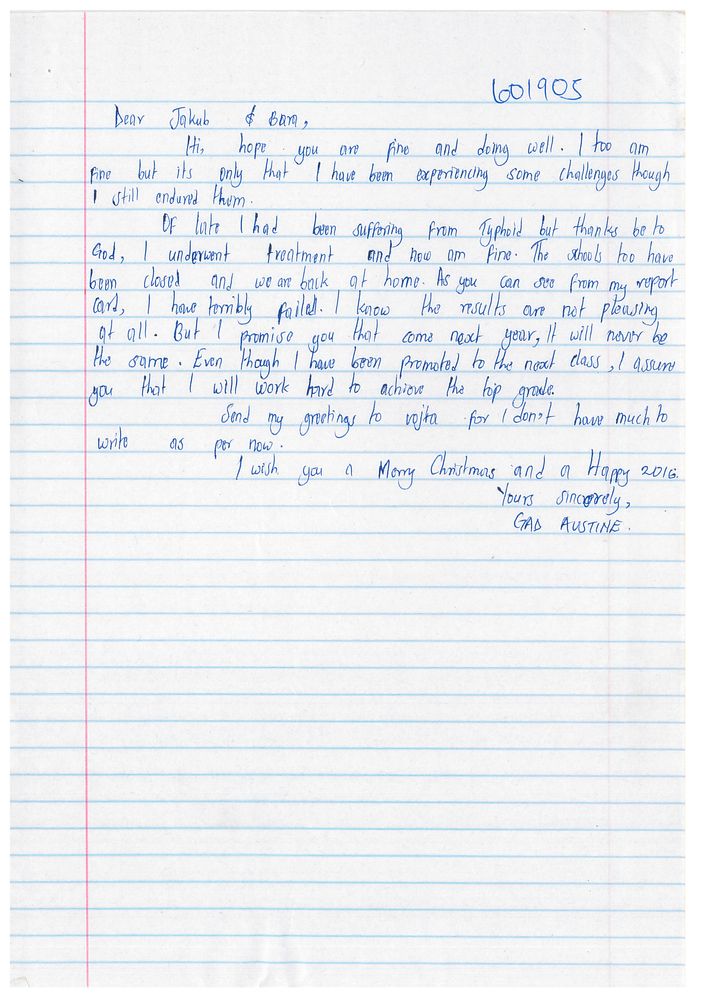 601905
Dear Jakub & Bara,
Hi, hope you are fine and doing well. I too am
fine but its only that I have been experiencing some challenges though
I still endured them.
Of late I had been suffering from Typhoid but thanks be to
God, I underwent treatment and now am fine. The schools too have
been closed and we are back at home. As you can see from my report
card, I have terribly failed. I know the results are not pleasing
at all. But I promise you that come next year, It will never be
the same. Even though I have been promoted to the next class, I assure
you that I will work hard to achieve the top grade.
Send my greetings to vojta for I don't have much to
write as per now.
I wish you a Merry Christmas and a Happy 2016.
Yours sincerely,
GAD AUSTINE.